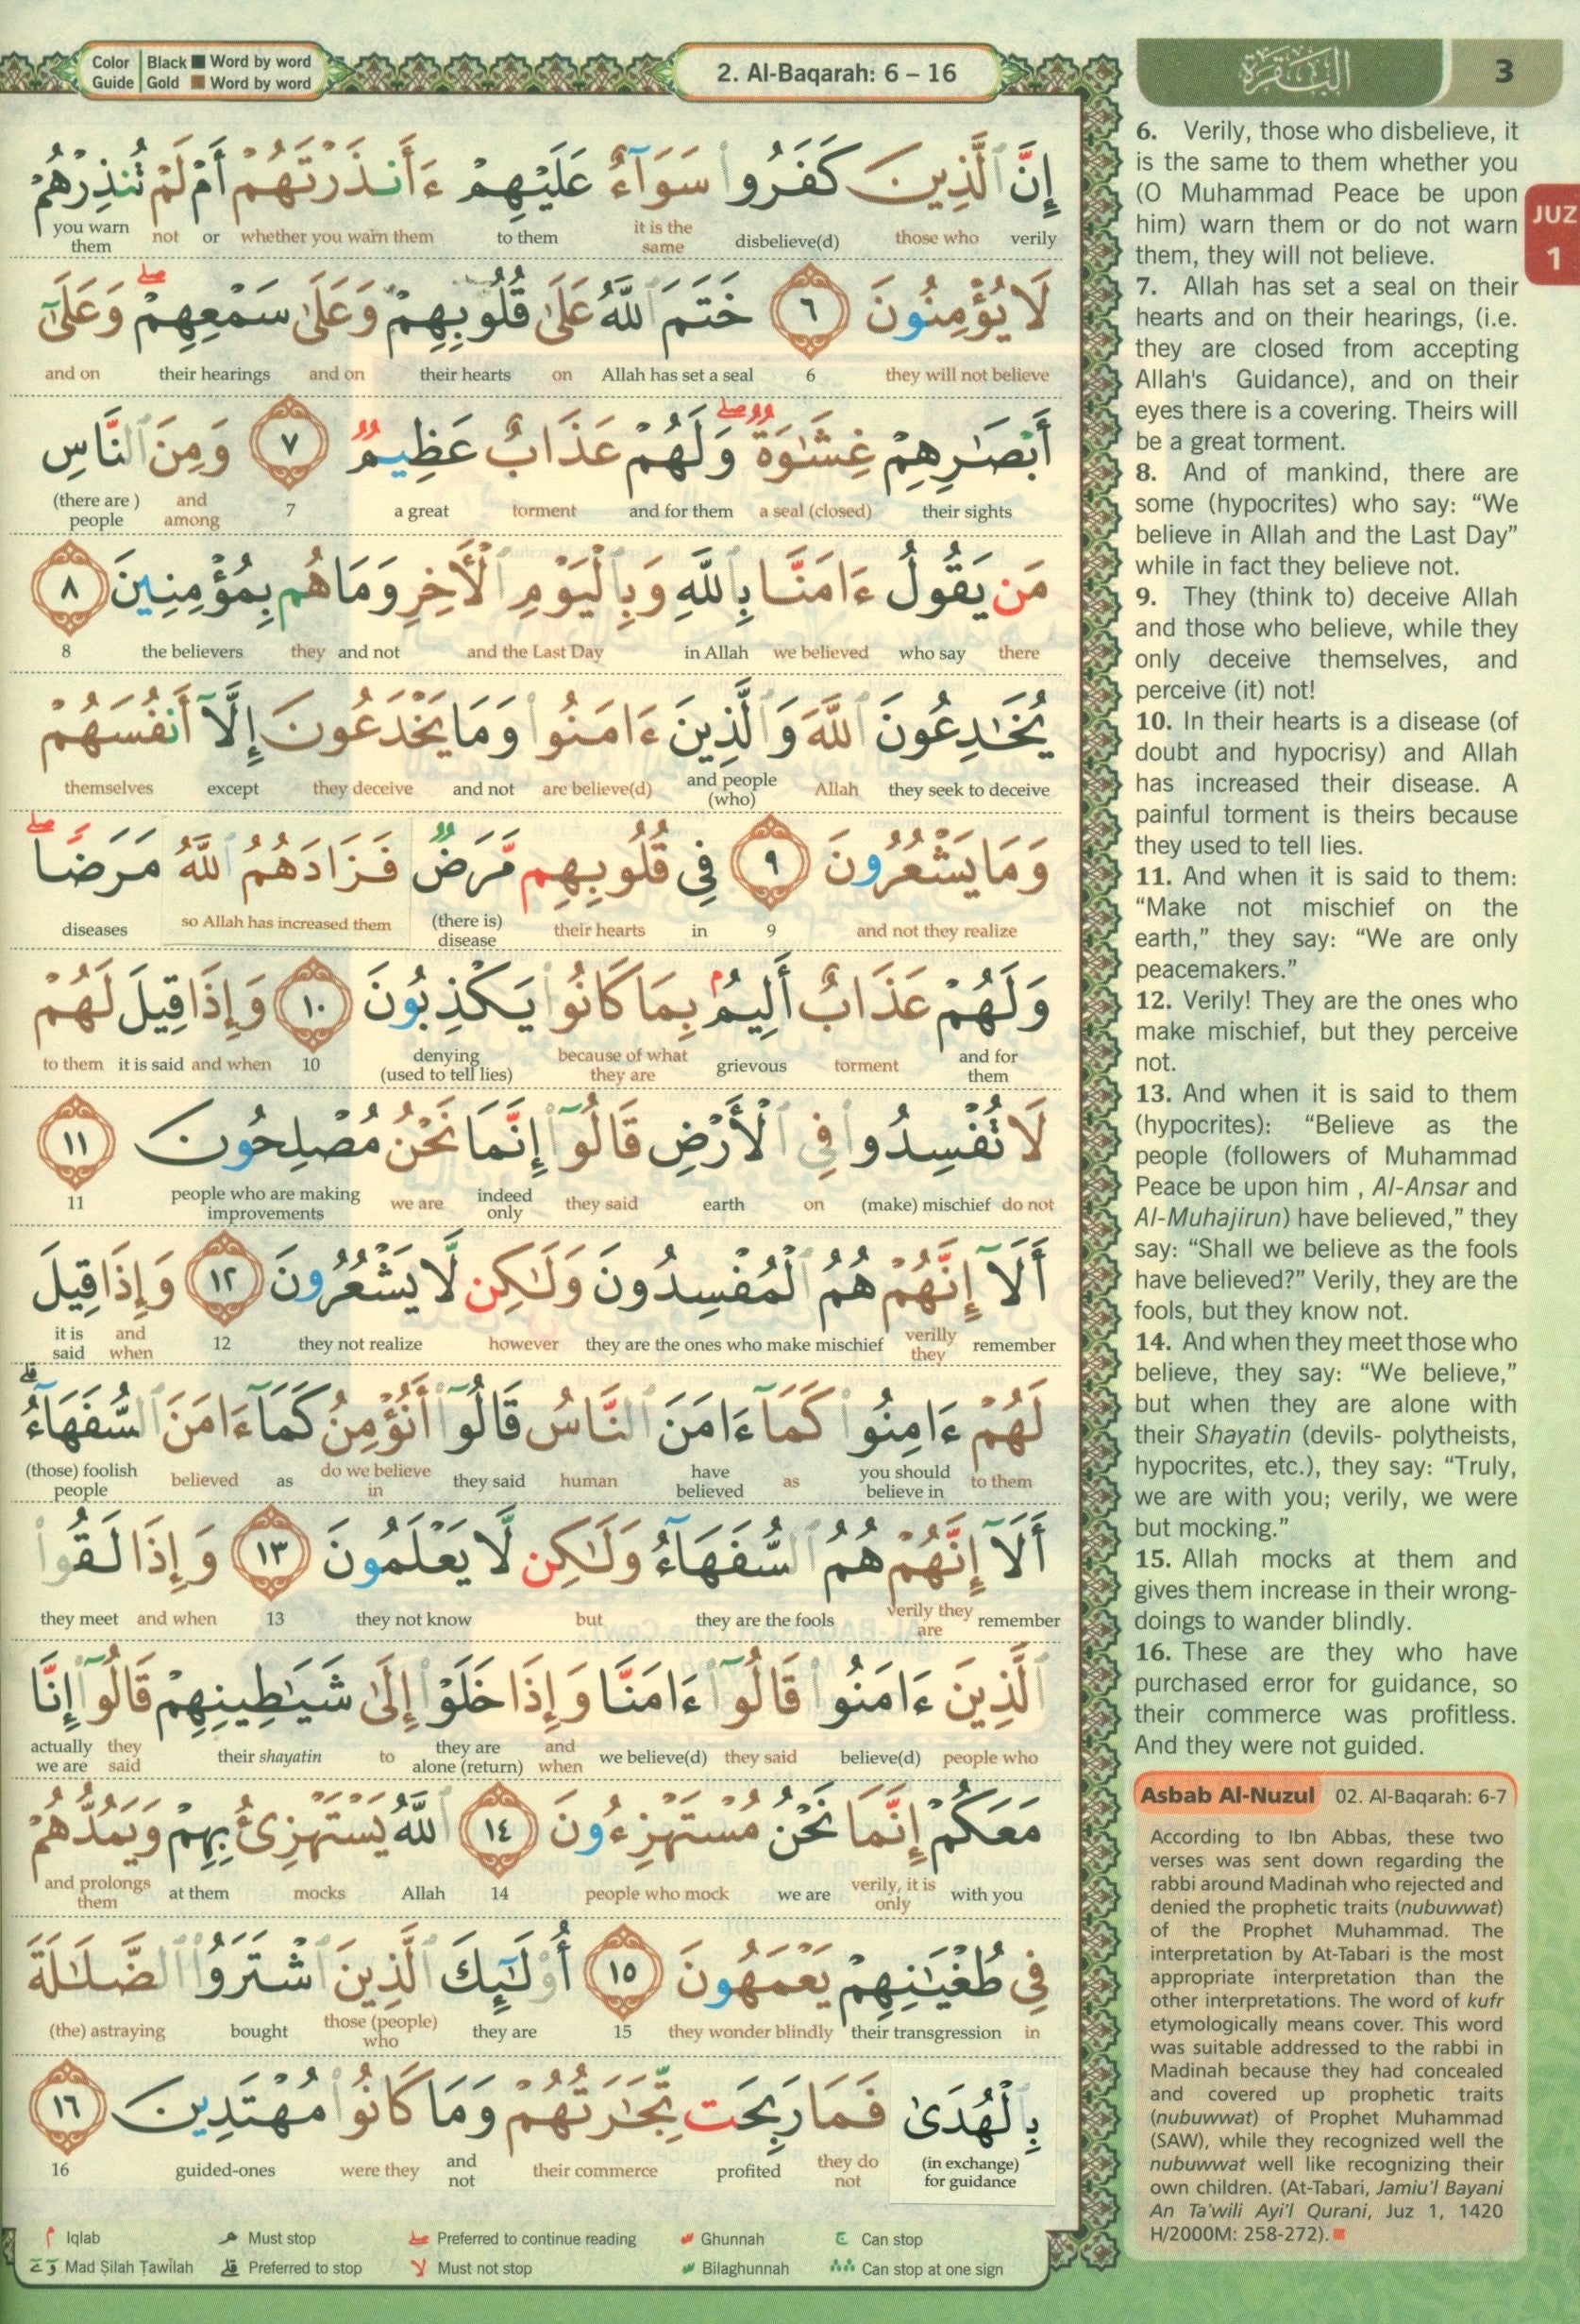 Color Guide | Black ■ Word by word
Gold ■ Word by word
2. Al-Baqarah: 6 – 16
البقرة
3
JUZ
1
إِنَّ ٱلَّذِينَ كَفَرُوا۟ سَوَآءٌ عَلَيْهِمْ ءَأَنذَرْتَهُمْ أَمْ لَمْ تُنذِرْهُمْ
verily those who disbelieve(d) it is the same to them whether you warn them or not you warn them
لَا يُؤْمِنُونَ ٦ خَتَمَ ٱللَّهُ عَلَىٰ قُلُوبِهِمْ وَعَلَىٰ سَمْعِهِمْ ۖ وَعَلَىٰٓ
they will not believe 6 Allah has set a seal on their hearts and on their hearings and on
أَبْصَـٰرِهِمْ غِشَـٰوَةٌ ۖ وَلَهُمْ عَذَابٌ عَظِيمٌ ٧ وَمِنَ ٱلنَّاسِ
their sights a seal (closed) and for them torment a great 7 and among (there are ) people
مَن يَقُولُ ءَامَنَّا بِٱللَّهِ وَبِٱلْيَوْمِ ٱلْـَٔاخِرِ وَمَا هُم بِمُؤْمِنِينَ ٨
there who say we believed in Allah and the Last Day and not they the believers 8
يُخَـٰدِعُونَ ٱللَّهَ وَٱلَّذِينَ ءَامَنُوا۟ وَمَا يَخْدَعُونَ إِلَّآ أَنفُسَهُمْ
they seek to deceive Allah and people (who) are believe(d) and not they deceive except themselves
وَمَا يَشْعُرُونَ ٩ فِى قُلُوبِهِم مَّرَضٌ فَزَادَهُمُ ٱللَّهُ مَرَضًا ۖ
and not they realize 9 in their hearts (there is) disease so Allah has increased them diseases
وَلَهُمْ عَذَابٌ أَلِيمٌۢ بِمَا كَانُوا۟ يَكْذِبُونَ ١٠ وَإِذَا قِيلَ لَهُمْ
and for them torment grievous because of what they are denying (used to tell lies) 10 and when it is said to them
لَا تُفْسِدُوا۟ فِى ٱلْأَرْضِ قَالُوٓا۟ إِنَّمَا نَحْنُ مُصْلِحُونَ ١١
do not (make) mischief on earth they said indeed only we are people who are making improvements 11
أَلَآ إِنَّهُمْ هُمُ ٱلْمُفْسِدُونَ وَلَـٰكِن لَّا يَشْعُرُونَ ١٢ وَإِذَا قِيلَ
remember verilly they they are the ones who make mischief however they not realize 12 and when it is said
لَهُمْ ءَامِنُوا۟ كَمَآ ءَامَنَ ٱلنَّاسُ قَالُوٓا۟ أَنُؤْمِنُ كَمَآ ءَامَنَ ٱلسُّفَهَآءُ ۗ
to them you should believe in as have believed human they said do we believe in as believed (those) foolish people
أَلَآ إِنَّهُمْ هُمُ ٱلسُّفَهَآءُ وَلَـٰكِن لَّا يَعْلَمُونَ ١٣ وَإِذَا لَقُوا۟
remember verily they are they are the fools but they not know 13 and when they meet
ٱلَّذِينَ ءَامَنُوا۟ قَالُوٓا۟ ءَامَنَّا وَإِذَا خَلَوْا۟ إِلَىٰ شَيَـٰطِينِهِمْ قَالُوٓا۟ إِنَّا
people who believe(d) they said we believe(d) and when they are alone (return) to their shayatin they said actually we are
مَعَكُمْ إِنَّمَا نَحْنُ مُسْتَهْزِءُونَ ١٤ ٱللَّهُ يَسْتَهْزِئُ بِهِمْ وَيَمُدُّهُمْ
with you verily, it is only we are people who mock 14 Allah mocks at them and prolongs them
فِى طُغْيَـٰنِهِمْ يَعْمَهُونَ ١٥ أُو۟لَـٰٓئِكَ ٱلَّذِينَ ٱشْتَرَوُا۟ ٱلضَّلَـٰلَةَ
in their transgression they wonder blindly 15 they are those (people) who bought (the) astraying
بِٱلْهُدَىٰ فَمَا رَبِحَت تِّجَـٰرَتُهُمْ وَمَا كَانُوا۟ مُهْتَدِينَ ١٦
(in exchange) for guidance they do not profited their commerce and not were they guided-ones 16
Iqlab Must stop Preferred to continue reading Ghunnah Can stop
Mad Ṣilah Ṭawīlah Preferred to stop Must not stop Bilaghunnah Can stop at one sign
6. Verily, those who disbelieve, it
is the same to them whether you
(O Muhammad Peace be upon
him) warn them or do not warn
them, they will not believe.
7. Allah has set a seal on their
hearts and on their hearings, (i.e.
they are closed from accepting
Allah's Guidance), and on their
eyes there is a covering. Theirs will
be a great torment.
8. And of mankind, there are
some (hypocrites) who say: “We
believe in Allah and the Last Day”
while in fact they believe not.
9. They (think to) deceive Allah
and those who believe, while they
only deceive themselves, and
perceive (it) not!
10. In their hearts is a disease (of
doubt and hypocrisy) and Allah
has increased their disease. A
painful torment is theirs because
they used to tell lies.
11. And when it is said to them:
“Make not mischief on the
earth,” they say: “We are only
peacemakers.”
12. Verily! They are the ones who
make mischief, but they perceive
not.
13. And when it is said to them
(hypocrites): “Believe as the
people (followers of Muhammad
Peace be upon him , Al-Ansar and
Al-Muhajirun) have believed,” they
say: “Shall we believe as the fools
have believed?” Verily, they are the
fools, but they know not.
14. And when they meet those who
believe, they say: “We believe,”
but when they are alone with
their Shayatin (devils- polytheists,
hypocrites, etc.), they say: “Truly,
we are with you; verily, we were
but mocking.”
15. Allah mocks at them and
gives them increase in their wrong-
doings to wander blindly.
16. These are they who have
purchased error for guidance, so
their commerce was profitless.
And they were not guided.
Asbab Al-Nuzul 02. Al-Baqarah: 6-7
According to Ibn Abbas, these two
verses was sent down regarding the
rabbi around Madinah who rejected and
denied the prophetic traits (nubuwwat)
of the Prophet Muhammad. The
interpretation by At-Tabari is the most
appropriate interpretation than the
other interpretations. The word of kufr
etymologically means cover. This word
was suitable addressed to the rabbi in
Madinah because they had concealed
and covered up prophetic traits
(nubuwwat) of Prophet Muhammad
(SAW), while they recognized well the
nubuwwat well like recognizing their
own children. (At-Tabari, Jamiu'l Bayani
An Ta'wili Ayi'l Qurani, Juz 1, 1420
H/2000M: 258-272).